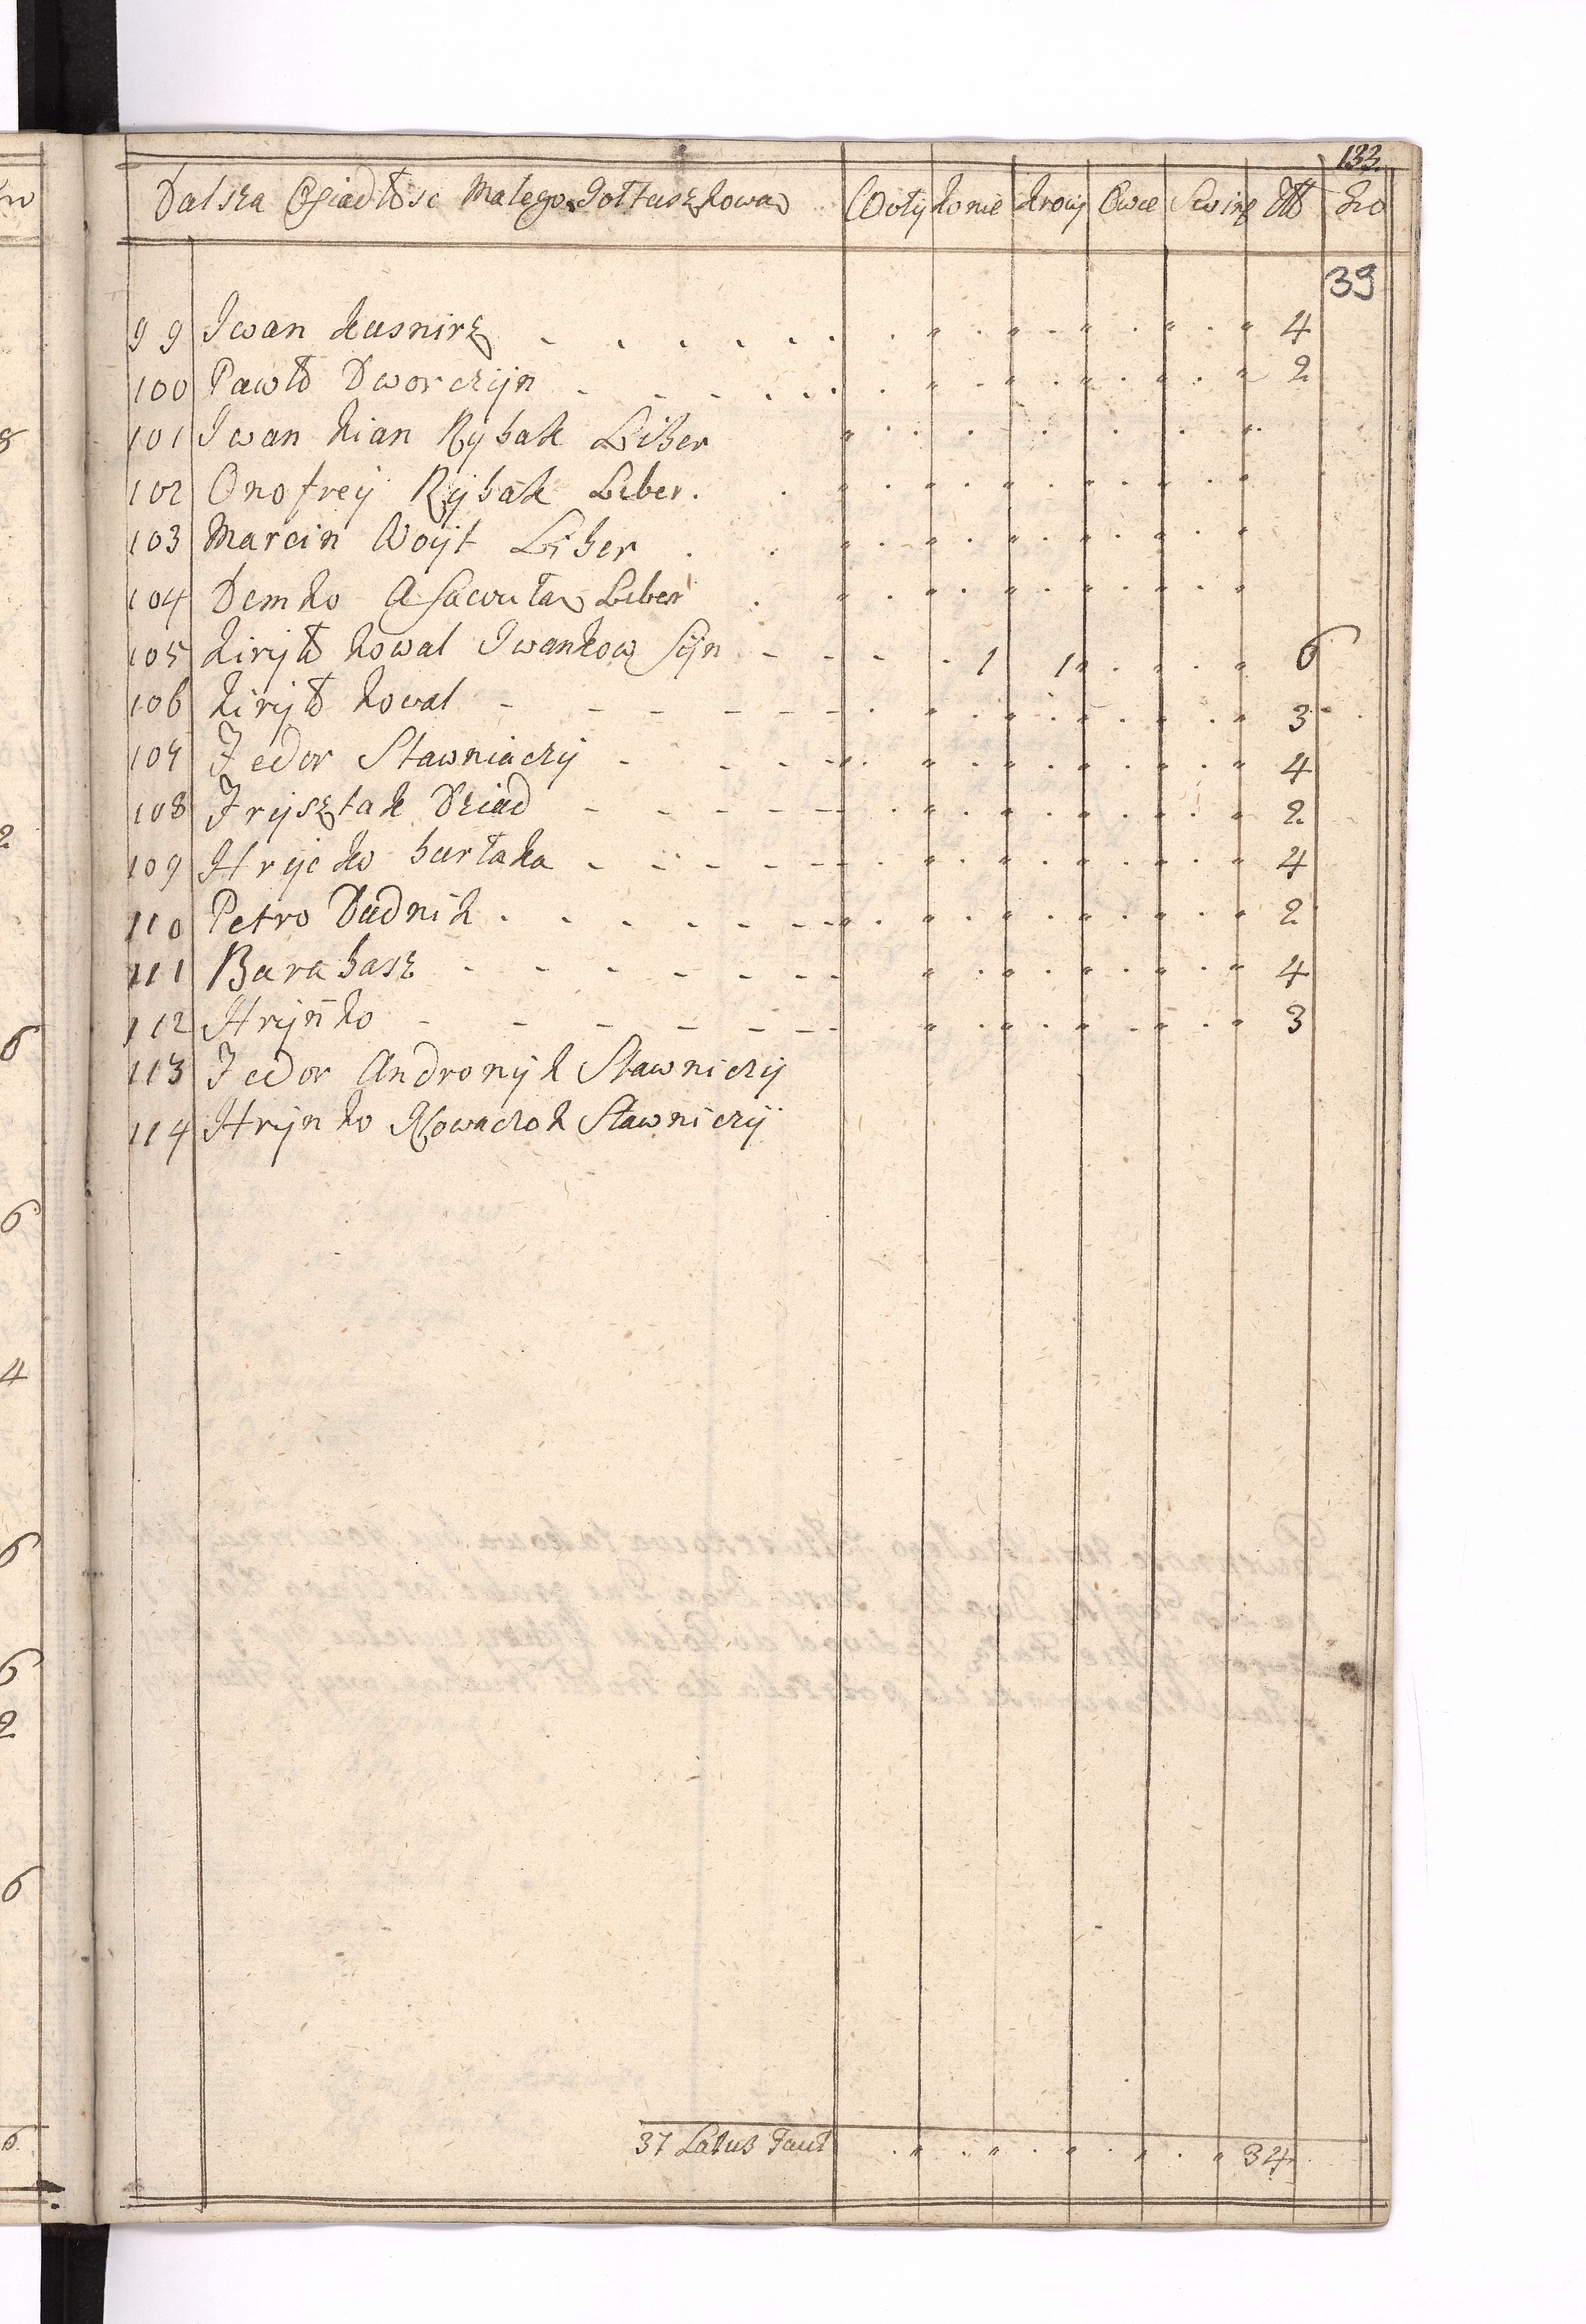 133
Dalsza Osiadłosc Małego Jołtuszkowa Woły konie krowy Owce Swinę Zł Gro
39
99 Iwan kusnirz 4
100 Pawło Dworczyn 2
101 Iwan kian Rybak Liber
102 Onofrey Rybak Liber
103 Marcin Woyt Liber
104 Demko Asawuła Liber
105 kiryło kowal Iwankow Syn 1 1 6
106 kiryło kowal 3
107 Fedor Stawniaczy 4
108 Frysztak Dziad 2
109 Hrycko burłaka 4
110 Petro Dudnik 2
111 Barabasz 4
112 Hrynko 3
113 Fedor Andronyk Stawniczy
114 Hrynko Nowaczok Stawniczy
37 Latus Facit 34
8
2
6
6
4
6
6
2
6
6